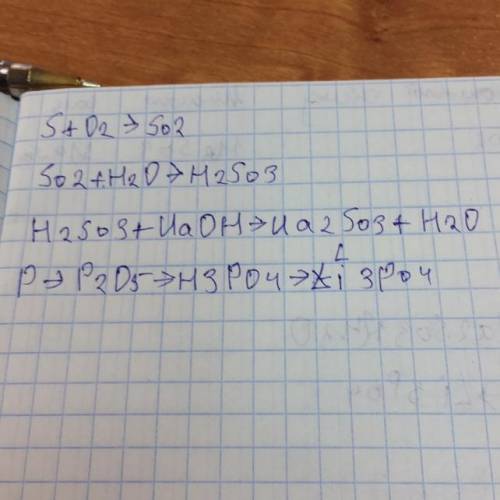 S+O2→SO2
SO2+H2O→H2SO3
H2SO3+NaOH→Na2SO3+H2O
P→P2O5→H3PO4→Li3PO4